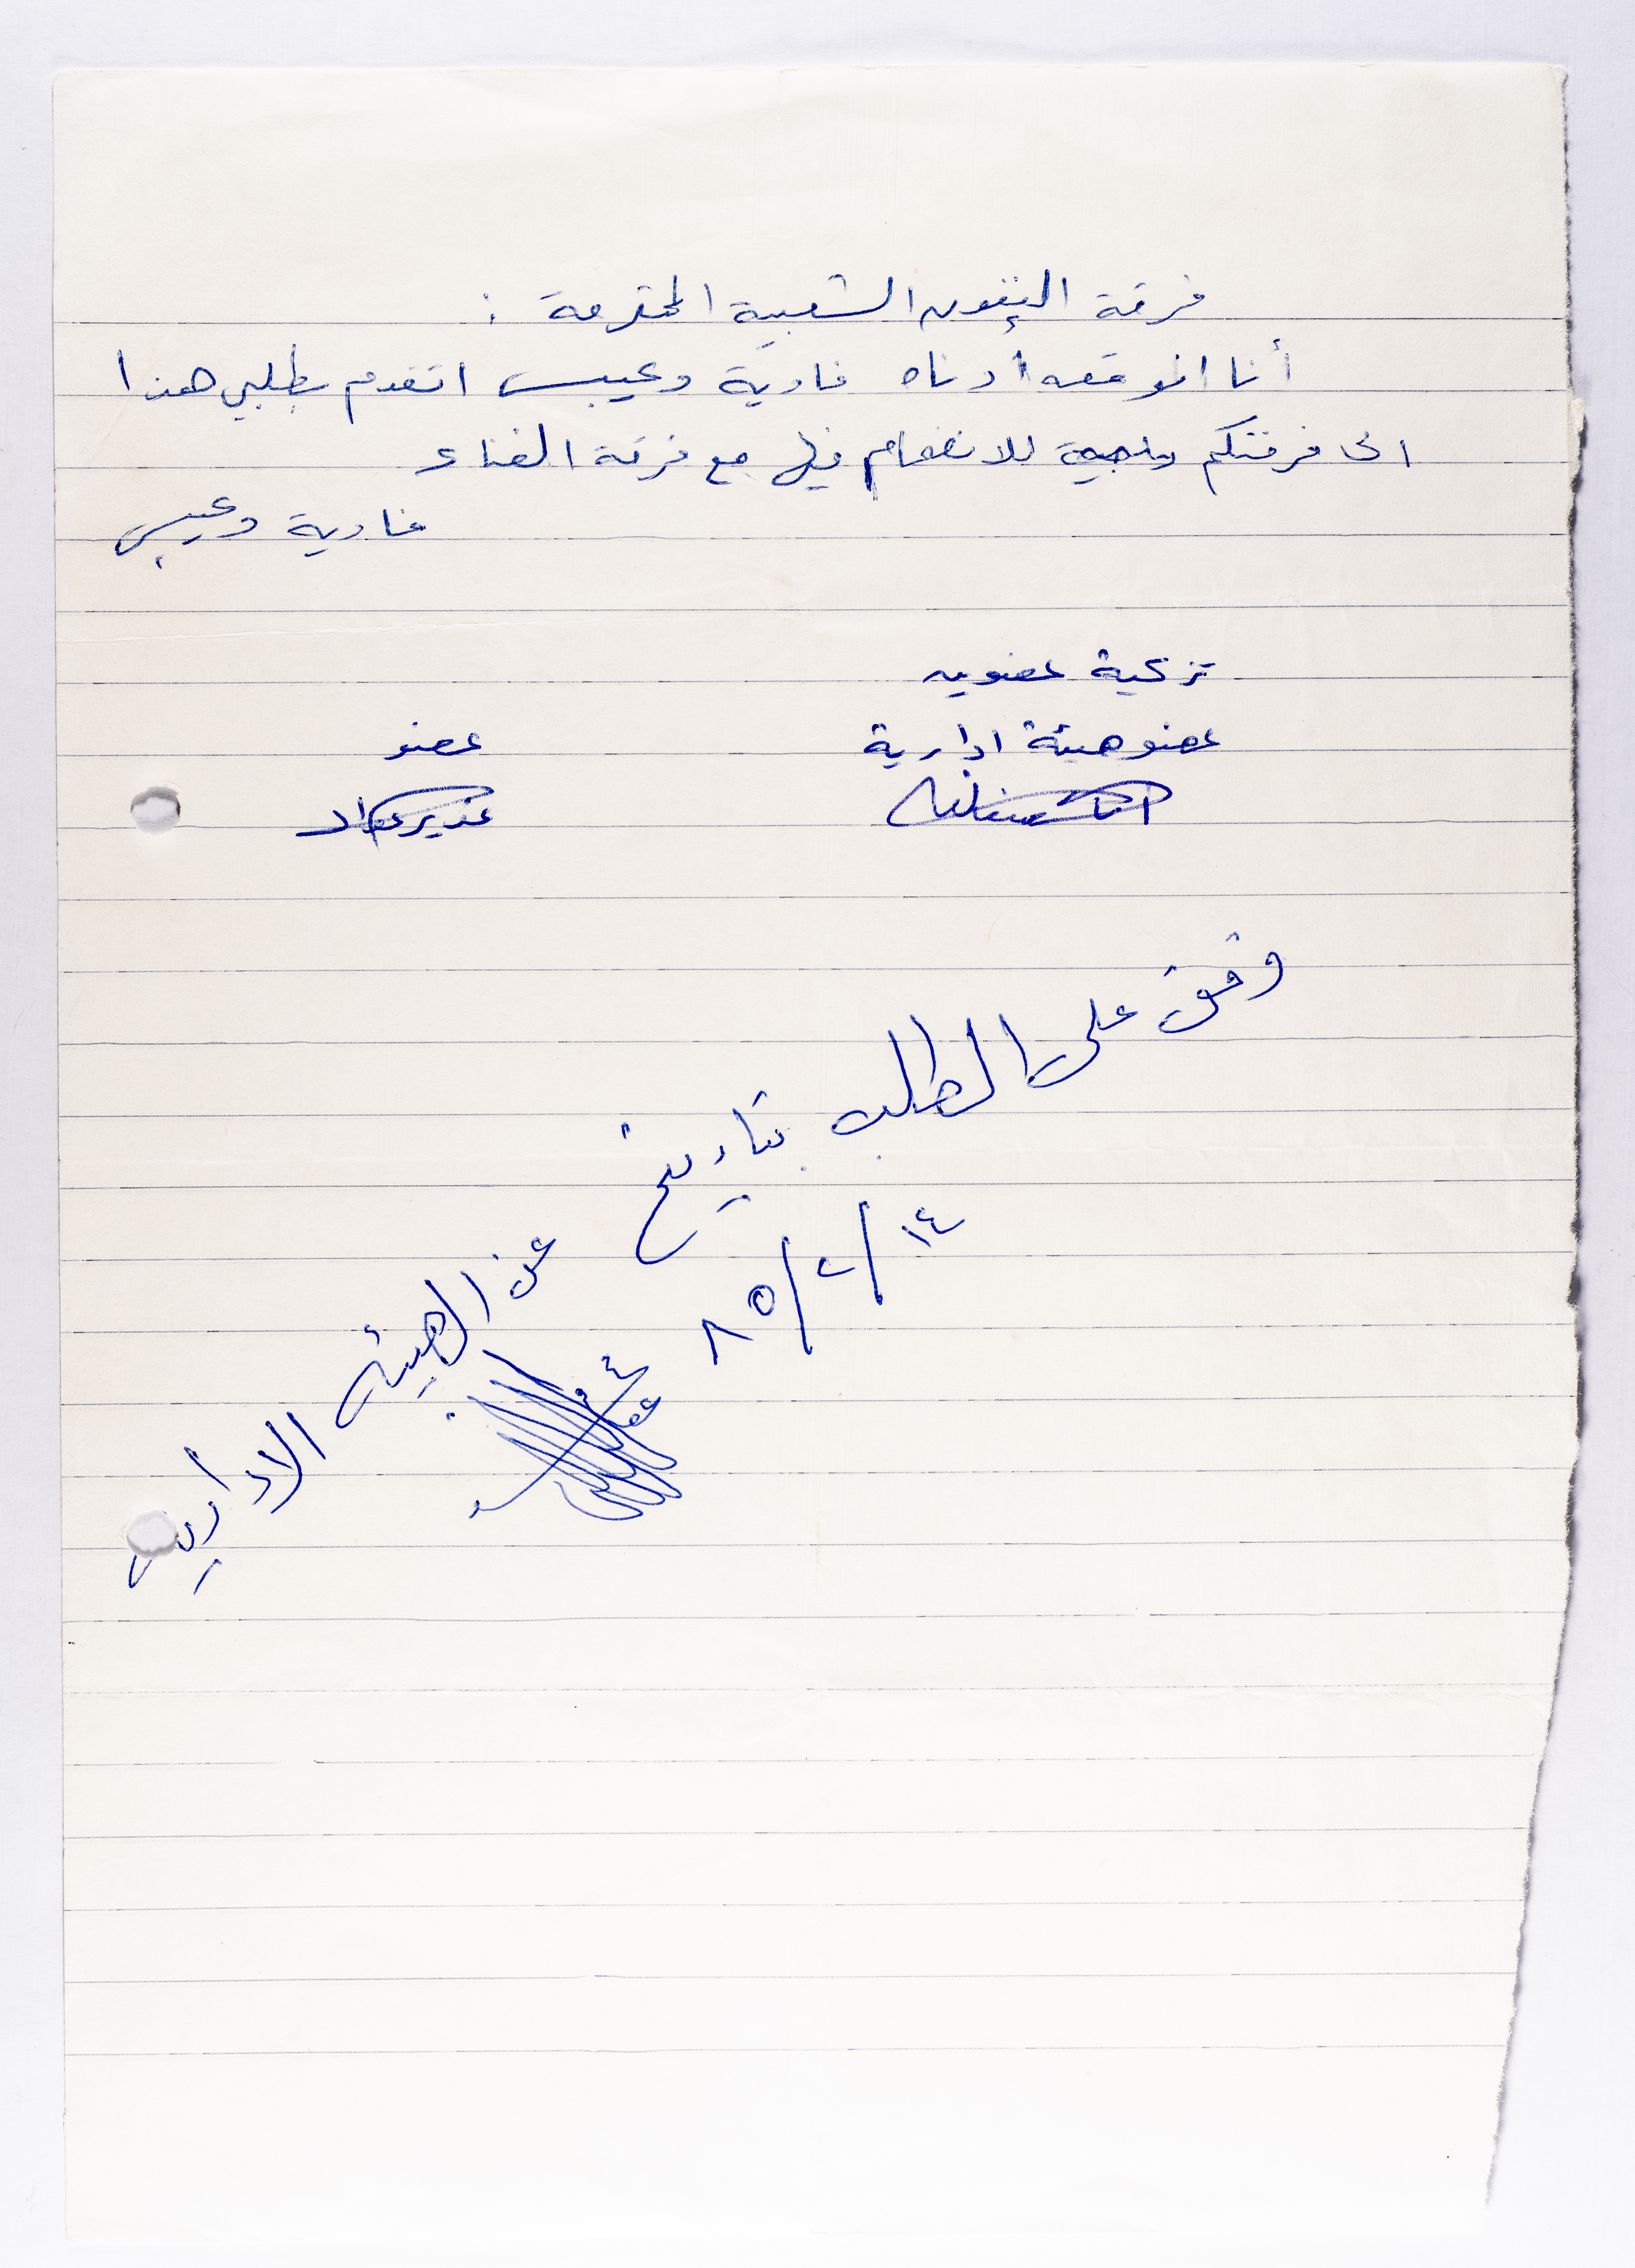 فرقة الفنون الشعبية المحترمة :
أنا الموقعه أدناه فادية دعيبس اتقدم بطلبي هذا
الى فرقتكم للانضمام فيها مع فرقة الغناء
فادية دعيبس
تزكية عضوين
عضو هيئة ادارية
عضو
غدير عواد
وفق على الطلب بتاريخ
١٤/٢/٨٥
عن الهيئة الادارية